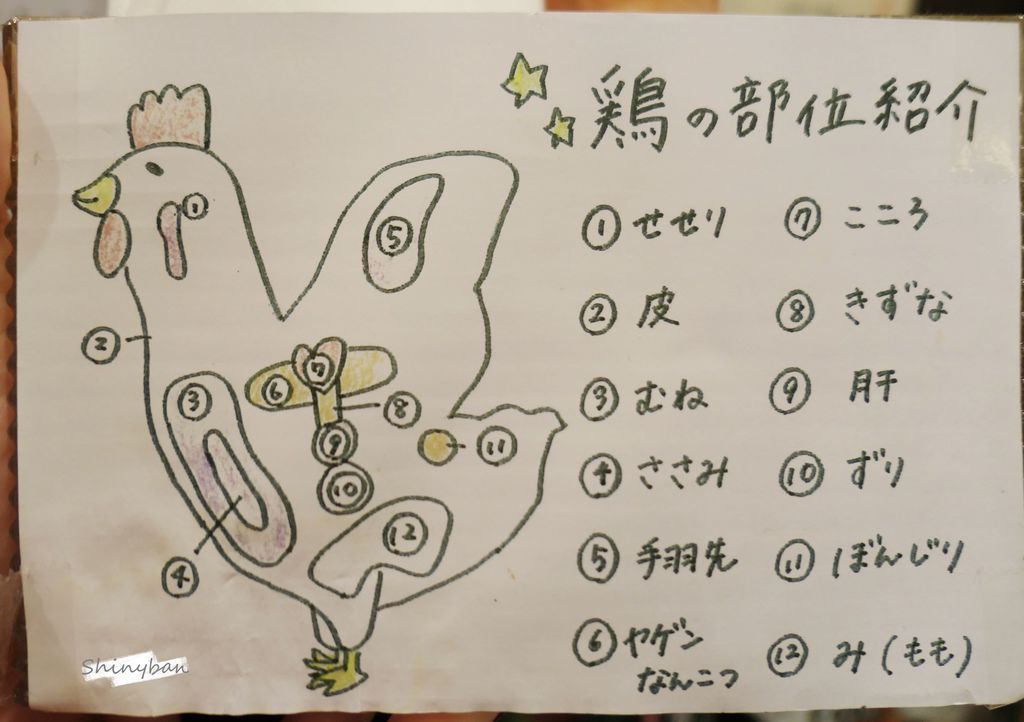 鶏の部位紹介
① せせり
② 皮
③ むね
④ ささみ
⑤ 手羽先
⑥ ヤゲン
なんこつ
⑦ こころ
⑧ きずな
⑨ 肝
⑩ ずり
⑪ ぼんじり
⑫ み(もも)
①
②
③
④
⑤
⑥
⑦
⑧
⑨
⑩
⑪
⑫
Shinyban